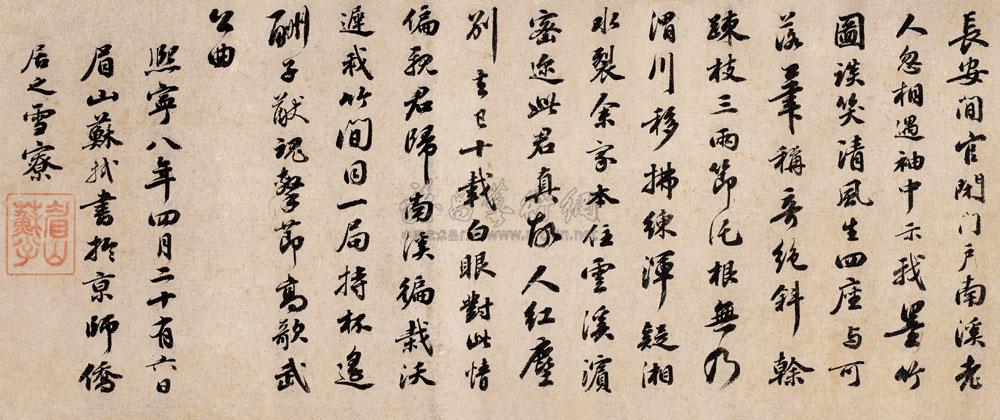 長安閒官閉門戶南溪老
人忽相遇袖中示我墨竹
圖談笑清風生四座与可
落筆稱奇絕斜榦
踈枝三兩節托根無乃
渭川移拂練渾疑湘
水裂余家本住雲溪濱
密迩此君真故人紅塵
別去已十載白眼對此情
偏親君歸南溪徧栽沃
遲我竹間同一局持杯遙
酬子猷魂擊節高歌武
公曲
熙寧八年四月二十有六日
眉山蘇軾書於京師僑
居之雪寮
眉山